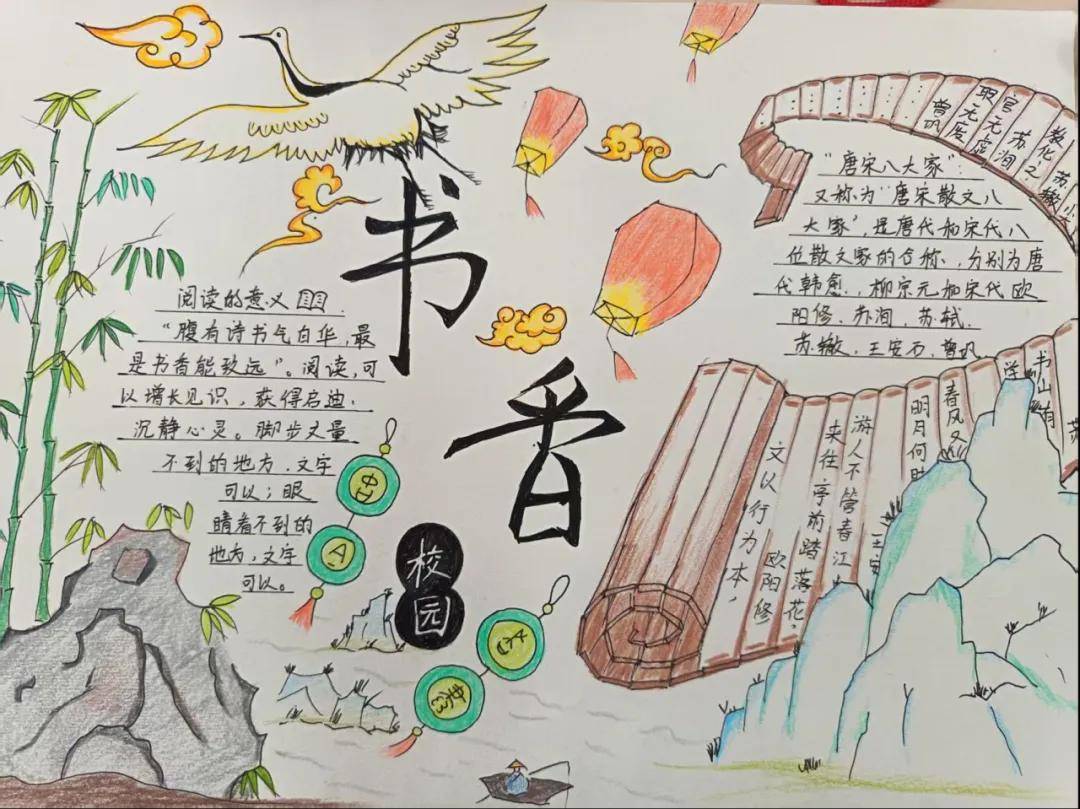 书
香
校
园
阅读的意义
“腹有诗书气自华,最
是书香能致远”。阅读,可
以增长见识,获得启迪,
沉静心灵。脚步丈量
不到的地方,文字
可以;眼
睛看不到的
地方,文字
可以。
“唐宋八大家”:
又称为“唐宋散文八
大家”,是唐代和宋代八
位散文家的合称,分别为唐
代韩愈、柳宗元和宋代欧
阳修、苏洵、苏轼、
苏辙、王安石、曾巩
小
苏辙
教化之
苏洵
官无宿
取无废
曾巩
书山有
学
春风又
王安
明月何时
游人不管春江
来往亭前踏落花
欧阳修
文以行为本,